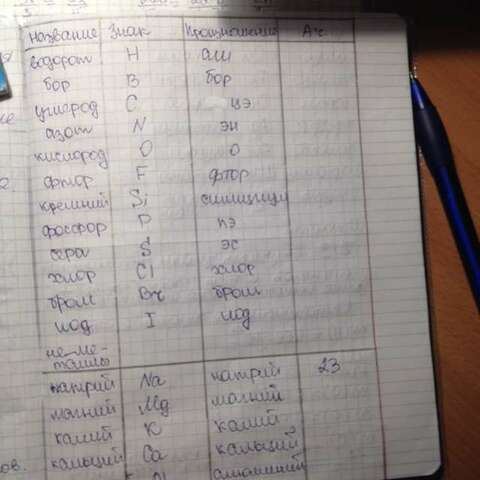 Название Знак Произношение Ar
водород H аш
бор B бор
углерод C цэ
азот N эн
кислород O о
фтор F фтор
кремний Si силициум
фосфор P пэ
сера S эс
хлор Cl хлор
бром Br бром
иод I иод
не-ме-
таллы
натрий Na натрий 23
магний Mg магний
калий K калий
кальций Ca кальций
алюминий
ов.